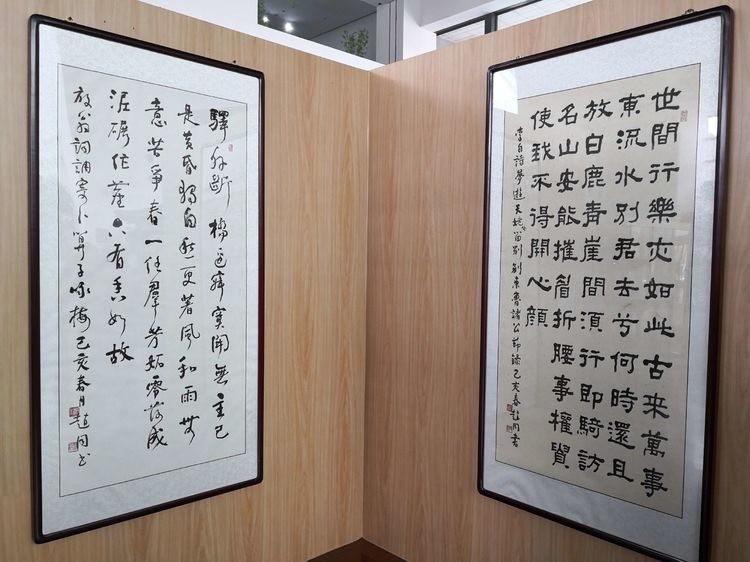 驛外斷橋邊寂寞開無主已
是黃昏獨自愁更著風和雨無
意苦爭春一任羣芳妬零落成
泥碾作塵只有香如故
放翁詞調寄卜算子咏梅己亥春月趙同書
世間行樂亦如此古来萬事
東流水別君去兮何時還且
放白鹿青崖間須行即騎訪
名山安能摧眉折腰事權貴
使我不得開心顏
李白詩夢遊天姥吟留別別東魯諸公節録己亥春趙同書